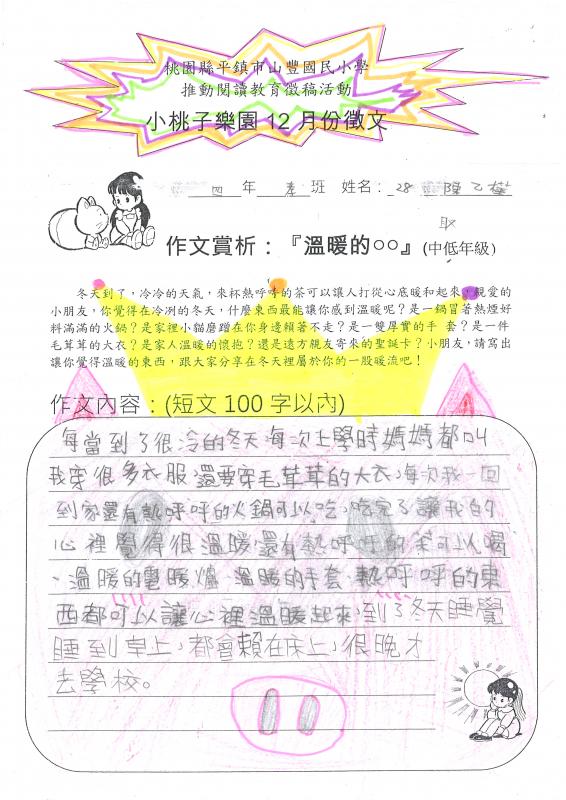 桃園縣平鎮市山豐國民小學
推動閱讀教育徵稿活動
小桃子樂園12月份徵文
四年 孝班 姓名：28 陳乙樺
取
作文賞析：『溫暖的○○』(中低年級)
冬天到了，冷冷的天氣，來杯熱呼呼的茶可以讓人打從心底暖和起來，親愛的
小朋友，你覺得在冷冽的冬天，什麼東西最能讓你感到溫暖呢？是一鍋冒著熱煙好
料滿滿的火鍋？是家裡小貓磨蹭在你身邊賴著不走？是一雙厚實的手 套？是一件
毛茸茸的大衣？是家人溫暖的懷抱？還是遠方親友寄來的聖誕卡？小朋友，請寫出
讓你覺得溫暖的東西，跟大家分享在冬天裡屬於你的一股暖流吧！
作文內容：(短文100字以內)
每當到了很冷的冬天每次上學時媽媽都叫
我穿很多衣服還要穿毛茸茸的大衣，每次我一回
到家還有熱呼呼的火鍋可以吃，吃完了讓我的
心裡覺得很溫暖，還有熱呼呼的茶可以喝
、溫暖的電暖爐、溫暖的手套、熱呼呼的東
西都可以讓心裡溫暖起來，到了冬天睡覺
睡到早上，都會賴在床上，很晚才
去學校。